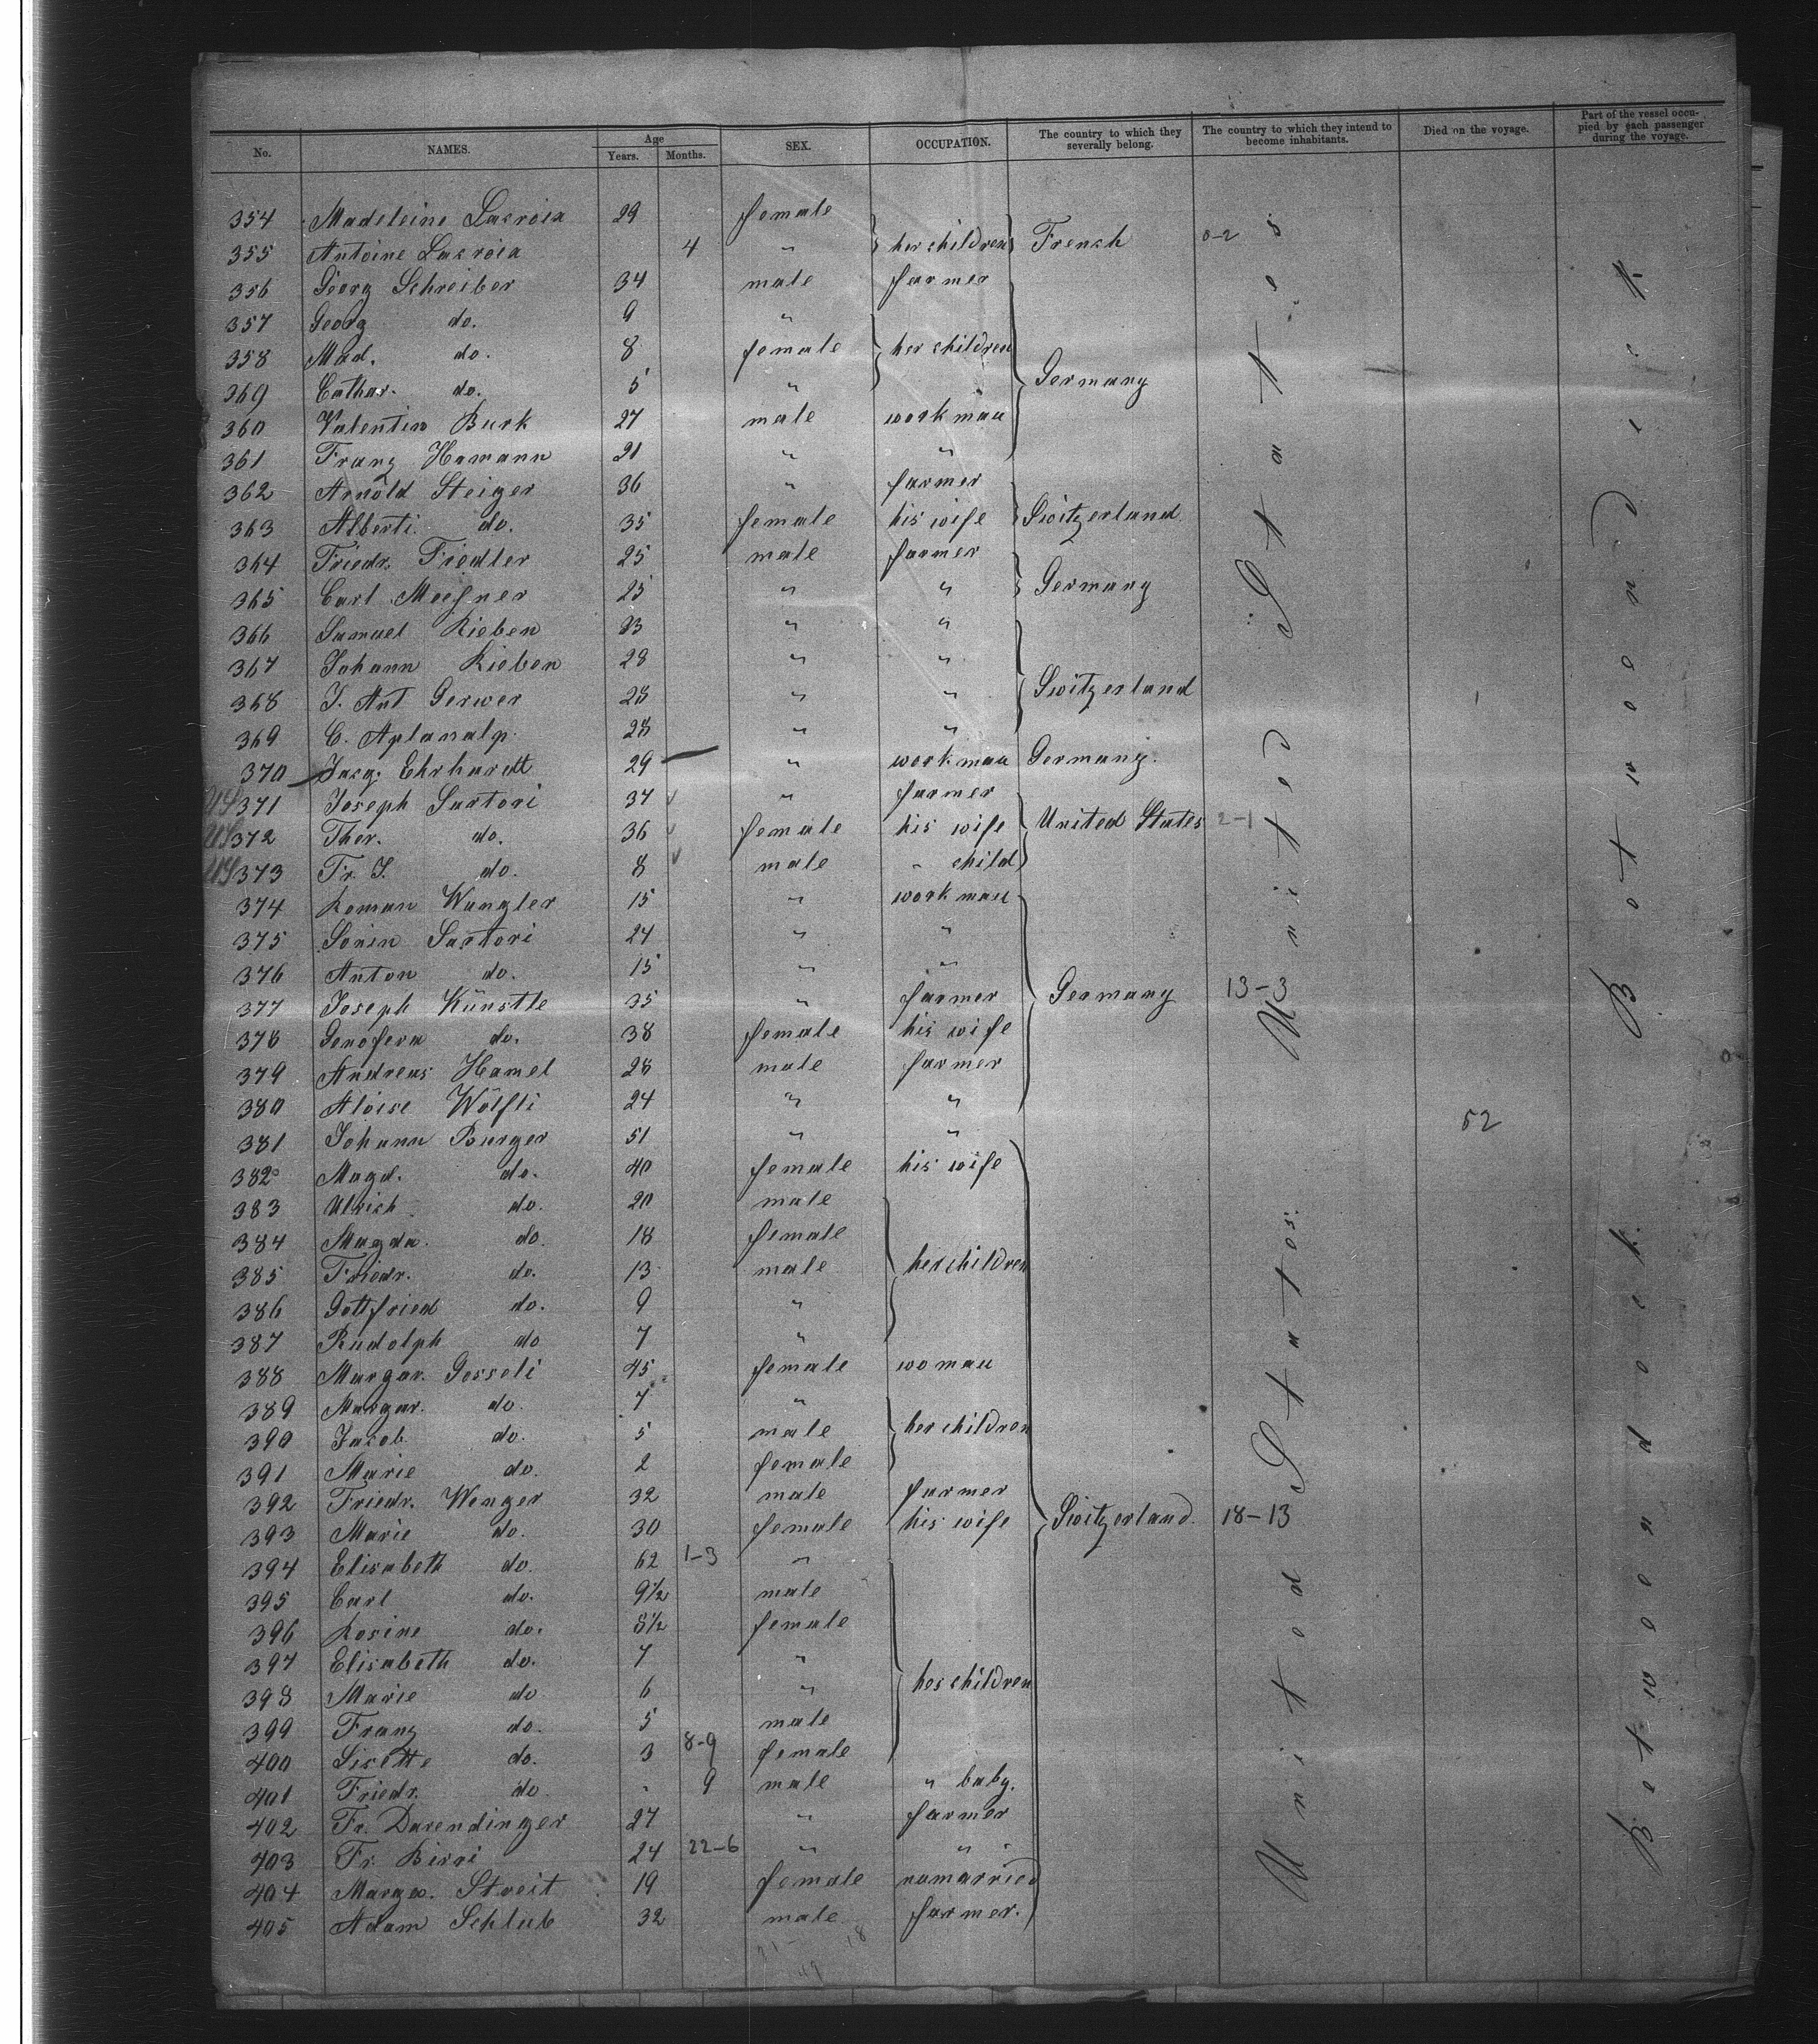 No. NAMES. Age Years. Months. SEX. OCCUPATION. The country to which they severally belong. The country to which they intend to become inhabitants. Died on the voyage. Part of the vessel occupied by each passenger during the voyage.
354 Madeleine Lacroix 29 female
355 Antoine Lacroix 4 " her children French 0-2
356 Georg Schreiber 34 male farmer
357 Georg do. 9 "
358 Mad. do. 8 female her children
369 Cathar. do. 5 " " Germany
360 Valentin Burk 27 male workman
361 Franz Hamann 21 " "
362 Arnold Steiger 36 " farmer
363 Alberti. do. 35 female his wife Switzerland
364 Friedr. Fiedler 25 male farmer
365 Carl Meißner 25 " " Germany
366 Samuel Rieben 23 " "
367 Johann Rieben 28 " "
368 J. Ant Gerwer 28 " " Switzerland
369 C. Aplanalp. 28 " "
370 Jacq. Ehrhardt 29 " workman Germany.
US 371 Joseph Sartori 37 " farmer
US 372 Ther. do. 36 female his wife United States 2-1
US 373 Fr. J. do. 8 male " child
374 Roman Wangler 15 " workman
375 Sonin Sartori 24 " "
376 Anton do. 15 " "
377 Joseph Künstle 35 " farmer Germany 13-3
378 Genofera do. 38 female his wife
379 Andreas Hamel 28 male farmer
380 Aloise Wölfli 24 " "
381 Johann Burger 51 " " 52
382 Magd. do. 40 female his wife
383 Ulrich do. 20 male
384 Magda. do. 18 female
385 Friedr. do. 13 male her children
386 Gottfried do. 9 "
387 Rudolph do 7 "
388 Margar. Gosseli 45 female woman
389 Margar. do. 7 "
390 Jacob do. 5 male her children
391 Marie do. 2 female
392 Friedr. Wenger 32 male farmer
393 Marie do. 30 female his wife Switzerland. 18-13
394 Elisabeth do. 62 1-3 "
395 Carl do. 9½ male
396 Rosine do. 8½ female
397 Elisabeth do. 7 "
398 Marie do 6 " her children
399 Franz do. 5 male
400 Lisette do. 3 8-9 female
401 Friedr. do " 9 male " baby.
402 Fr. Darendinger 27 " farmer
403 Fr. Birri 24 22-6 " "
404 Margar. Streit 19 female unmarried
405 Adam Schlub 32 male farmer.
United States
United States.
Between deck
Between deck.